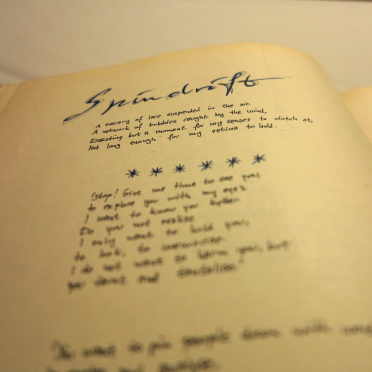 Spindrift
A tracery of lace suspended in the air
A network of bubbles caught by the wind,
Existing but a moment for my senses to clutch at,
Not long enough for my retina to hold.
* * * * * *
'Stop! Give me time to see you,
to explore you with my eyes
I want to know you better
Do you not realise
I only want to hold you,
to look, to
I do not want to harm you, but
you and
to pin people down with